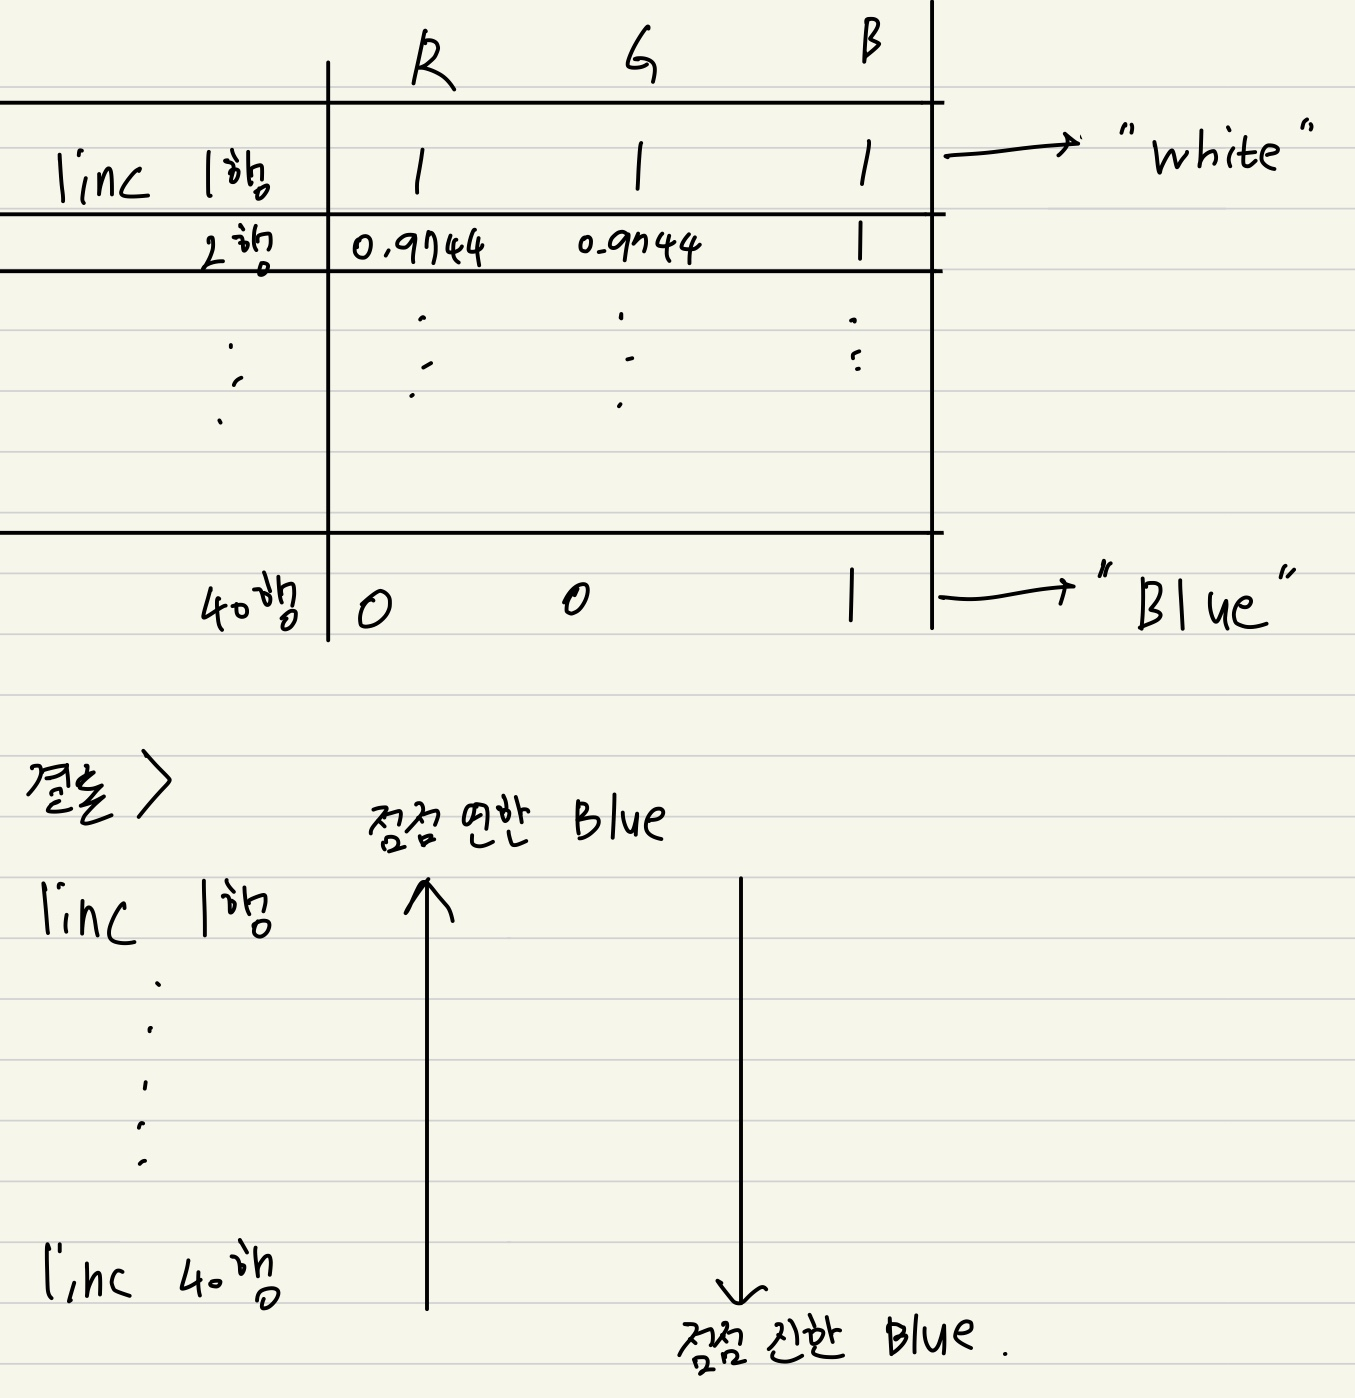 R G B
linc 1행 1 1 1 → "white"
2행 0.9744 0.9744 1
40행 0 0 1 → "Blue"
결론 >
점점 연한 Blue
linc 1행
linc 40행
점점 진한 Blue.